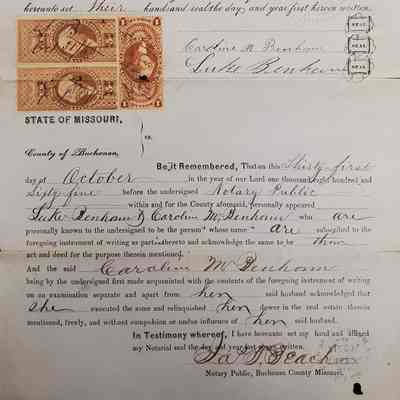 hereunto set Their hand and seal the day and year first herein written.
Caroline M. Denham SEAL
Luke Denham SEAL
SEAL
STATE OF MISSOURI,
ss.
County of Buchanan,
Be it Remembered, That on this Thirty first
day of October in the year of our Lord one thousand eight hundred and
Sixty five before the undersigned Notary Public
within and for the County aforesaid, personally appeared
Luke Denham & Caroline M. Denham who are
personally known to the undersigned to be the person whose name are subscribed to the
foregoing instrument of writing as part thereto and acknowledge the same to be their
act and deed for the purpose therein mentioned.
And the said Caroline M Denham
being by the undersigned first made acquainted with the contents of the foregoing instrument of writing
on an examination separate and apart from her said husband acknowledged that
She executed the same and relinquished her dower in the real estate therein
mentioned, freely, and without compulsion or undue influence of her said husband.
In Testimony whereof, I have hereunto set my hand and affixed
my Notarial seal the day and year last above written.
Beach
Notary Public, Buchanan County Missouri.